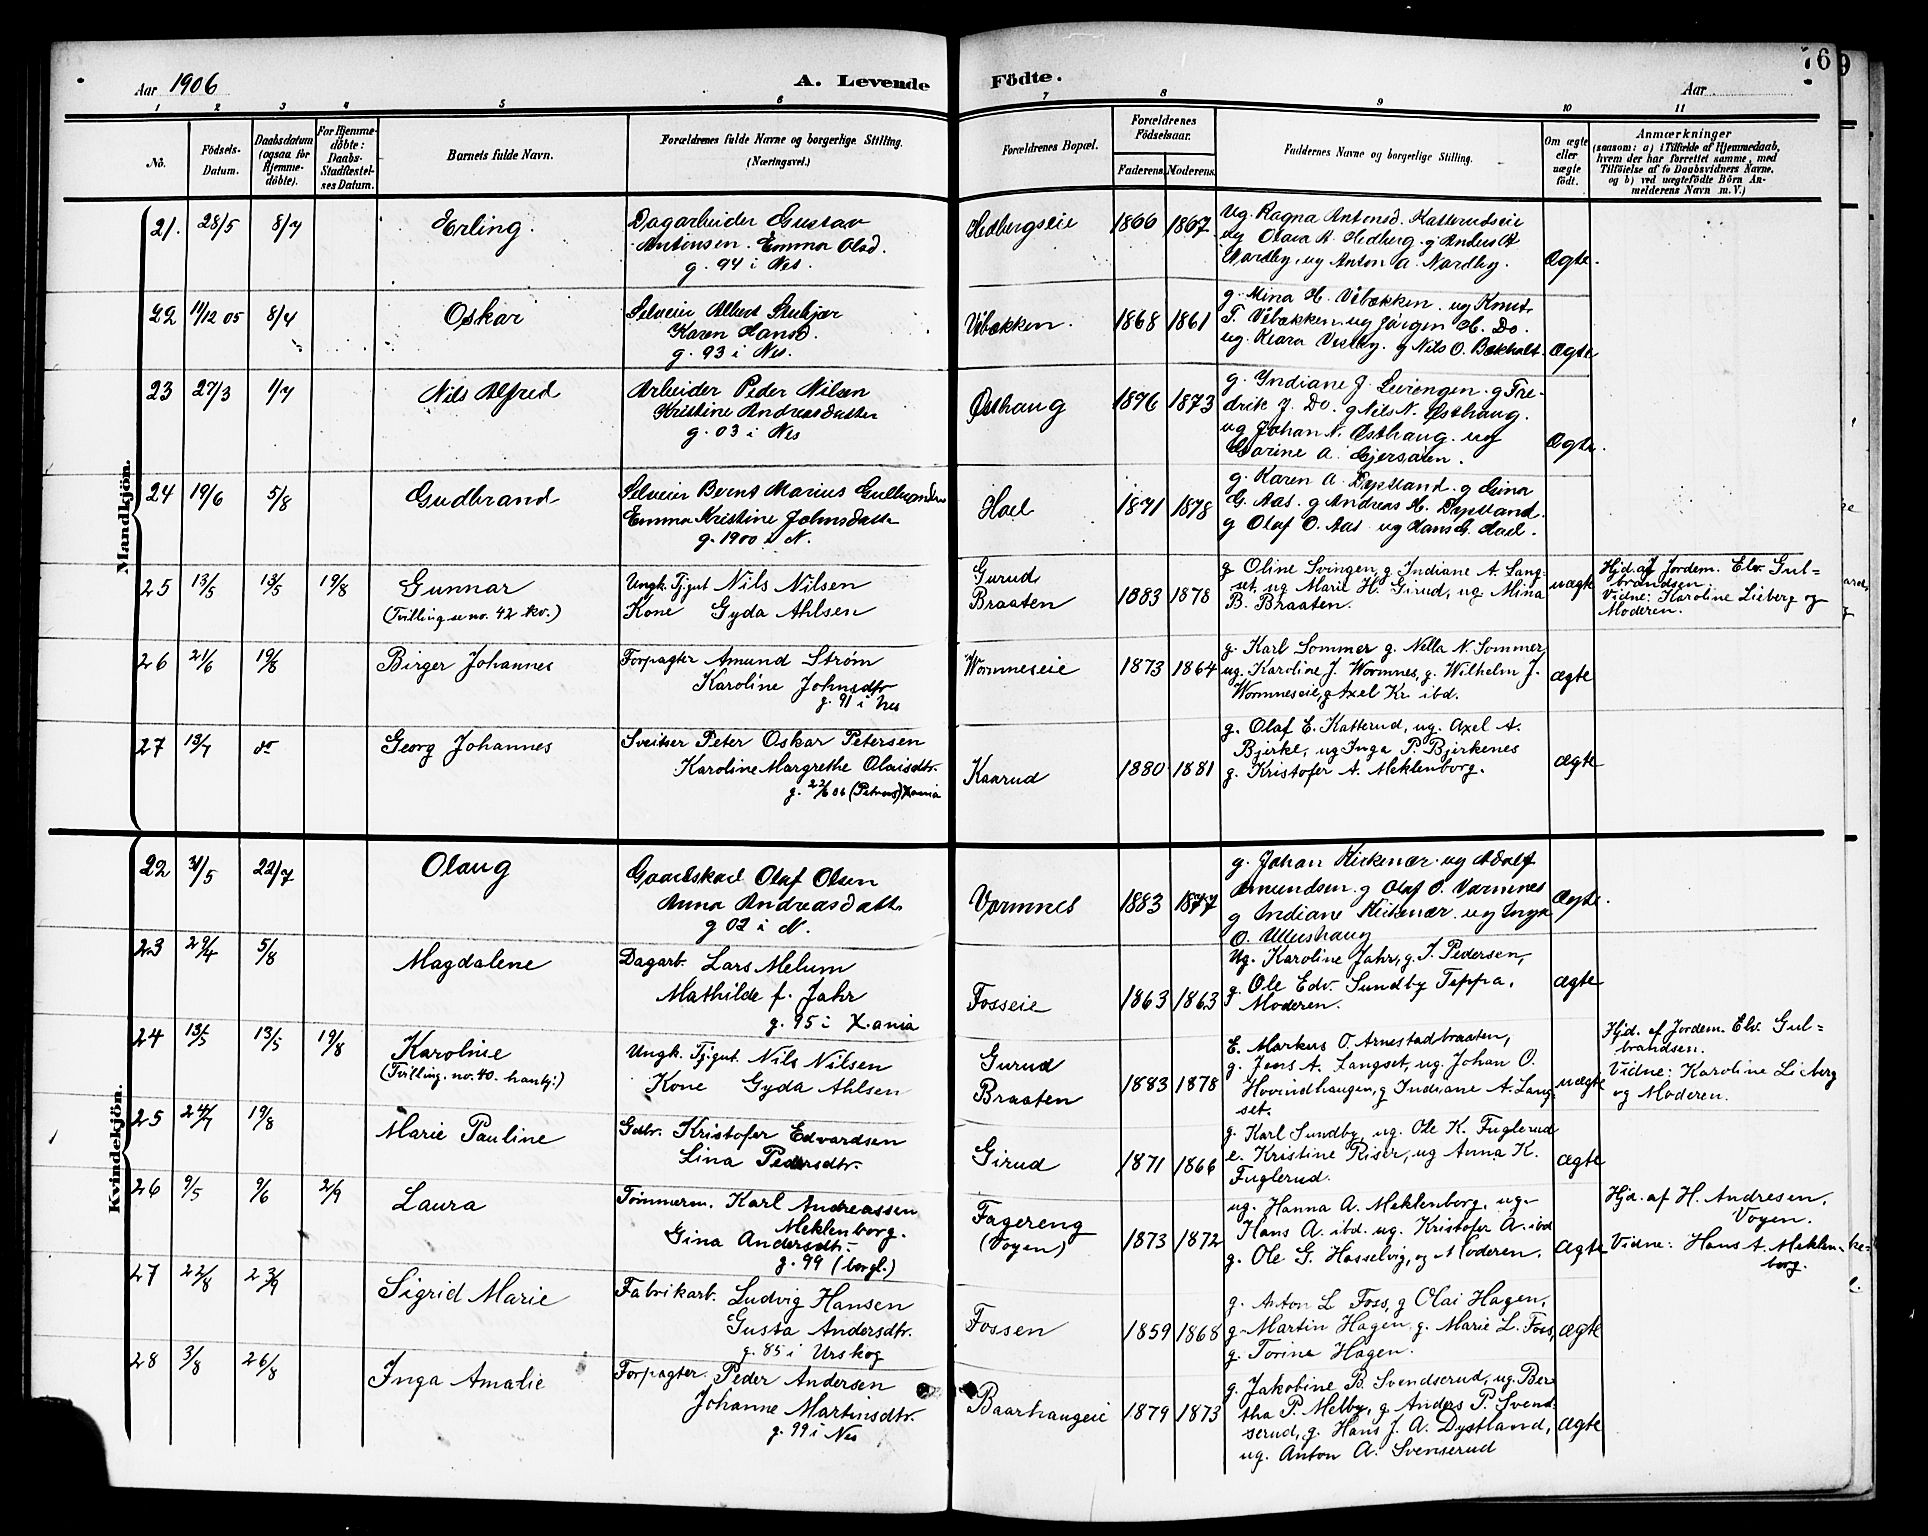 76
9
Aar 1906
A. Levende Födte.
Aar
1 2 3 4 5 6 7 8 9 10 11
No.
Födsels-Datum.
Daabsdatum (ogsaa for Hjemme-döbte).
For Hjemme-döbte: Daabs-Stadfæstel-ses Datum.
Barnets fulde Navn.
Forældrenes fulde Navne og borgerlige Stilling.
(Næringsvei.)
Forældrenes Bopæl.
Forældrenes Födselsaar.
Faderens. Moderens.
Faddernes Navne og borgerlige Stilling.
Om ægte eller uægte födt.
Anmærkninger
(saasom: a) i Tilfælde af Hjemmedaab,
hvem der har forrettet samme, med
Tilföielse af to Daabsvidners Navne.
og b) ved uægtefödte Börn An-
melderens Navn m. V.)
Mandkjön.
21. 28/5 8/7 Erling.
Dagarbeider Gustav
Antonsen. Emma Olsd.
g. 94 i Nes.
Hedbergseie 1866 1867
Ug. Ragna Antonsd. Katterudseie
ug Olava A. Hedberg. g Anders A
Nordby, ug Anton A. Nordby.
Ægte.
22 11/12 05 8/7 Oskar
Selveier Albert Stubjær
Karen Hansd.
g. 93 i Nes.
Vibækken. 1868 1861
g. Mina H. Vibækken. ug Knut
T. Vibækken. ug Jörgen H. Do.
ug. Klara Vestby. g Nils O. Bækholt.
Ægte
23 27/3 1/7 Nils Alfred
Arbeider Peder Nilsen
Kristine Andreasdatter
g. 03 i Nes
Østhaug 1876 1873
g. Indiane J. Leirengen. g Fre-
drik J. Do. g Nils N. Østhaug.
ug Johan N. Østhaug. ug
Karine A. Gjersøien.
Ægte.
24 19/6 5/8 Gudbrand
Selveier Bernt Marius Gulbrandsen
Emma Kristine Johnsdatter
g. 1900 i N.
Hoel 1871 1878
g. Karen A. Dystland. g Gina
G. Aas. g Andreas H. Dystland.
g Olaf O. Aas ug Hans G. Hoel.
25 13/5 13/5 19/8 Gunnar
(Tvilling se no. 42 kv.)
Ungk. Tj.gut Nils Nilsen
Kone Gyda Ahlsen
Gurud
Braaten 1883 1878
g Oline Svingen, g Indiane A. Lang-
set. ug Marie H. Girud, ug. Mina
B. Braaten.
uægte
Hjd. af Jordem. Elv. Gul=
brandsen.
Vidne: Karoline Lieberg og
Moderen.
26 21/6 19/8 Birger Johannes
Forpagter Amund Strøm
Karoline Johnsdtr
g. 91 i Nes
Wormneseie 1873 1864
g. Karl Sommer g. Nella N. Sommer,
ug. Karoline J. Wormnes, g. Wilhelm J.
Wormneseie, g Axel Kr. ibd.
ægte
27 13/7 do Georg Johannes
Sveitser Peter Oskar Petersen
Karoline Margrethe Olaisdtr.
g. 22/6 06 (Petrus) Xania
Kaarud 1880 1881
g. Olaf E. Katterud, ug. Axel A.
Bjerke, ug Inga P. Bjerkenes
g. Kristofer A. Meklenborg.
ægte
Kvindekjön.
22 31/5 22/7 Olaug
Gaardskarl Olaf Olsen
Anna Andreasdatter
g 02 i N.
Vormnes 1883 1877
g. Johan Kirkenær. ug Adolf
Amundsen. g Olaf O. Vormnes
g Indiane Kirkenær. ug Inga
O. Ullershaug
Ægte.
23 29/4 5/8 Magdalene
Dagarb. Lars Melum
Mathilde f. Jahr
g. 95 i X.ania
Fosseie 1863 1863
Ug. Karoline Jahr, g. J. Pedersen,
g. Ole Edv. Sundby Teppa.
Moderen.
ægte
24 13/5 13/5 19/8 Karoline
(Tvilling. no. 40. hankj:)
Ungk. Tj.gut. Nils Nilsen
Kone Gyda Ahlsen
Gurud
Braaten 1883 1878
E. Markus O. Arnestadbraaten,
g. Jens A. Langset, ug. Johan O.
Hovindhaugen, g Indiane A. Lang-
set.
uægte
Hjd. af Jordem. Elv. Gul=
brandsen.
Vidne: Karoline Lieberg
og Moderen.
25 24/7 19/8 Marie Pauline
Gdbr. Kristofer Edvardsen
Lina Pedersdtr.
Girud 1871 1866
g. Karl Sundby, ug. Ole K. Fuglerud
e. Kristine Riser, ug Anna K.
Fuglerud.
ægte
26 9/5 9/6 2/9 Laura
Tømmerm. Karl Andreassen
Meklenborg.
Gina Andersdtr.
g. 99 (borgl.)
Fagereng
(Voyen) 1873 1872
ug. Hanna A. Meklenborg, ug.
Hans A. ibd. ug. Kristofer A. ibd
g. Ole G. Hasselvig, og Moderen.
ægte
Hjd. af H. Andresen,
Voyen.
Vidne: Hans A. Meklen-
borg.
27 22/8 23/9 Sigrid Marie
Fabrikarb. Ludvig Hansen
Gusta Andersdtr.
g. 85 i Urskog
Fossen 1859 1868
g. Anton L Foss, g Olai Hagen,
g. Martin Hagen, g. Marie L. Foss,
g. Torine Hagen.
ægte
28 3/8 26/8 Inga Amalie
Forpagter Peder Andersen
Johanne Martinsdtr.
g. 99 i Nes
Baarhaugeie 1879 1873
g. Jakobine B. Svendserud, ug. Ber
tha P. Melby, g. Anders P. Svend-
serud, g. Hans J. A. Dystland,
ug. Anton A. Svenserud
ægte